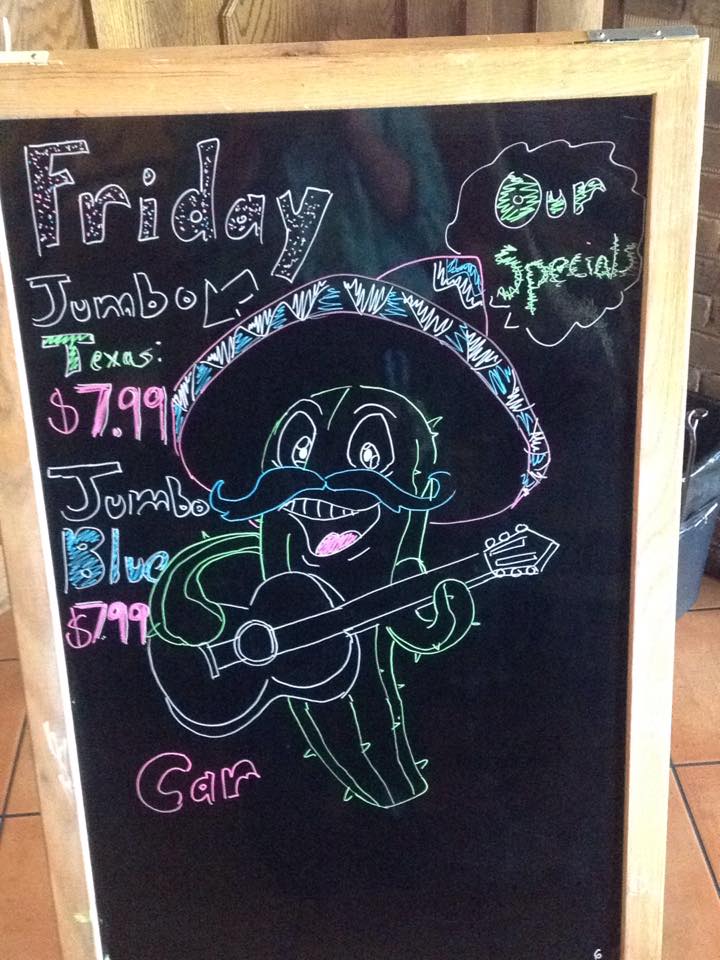 Friday
Our
Special
Jumbo
Texas:
$7.99
Jumbo
Blue
$799
Car
6